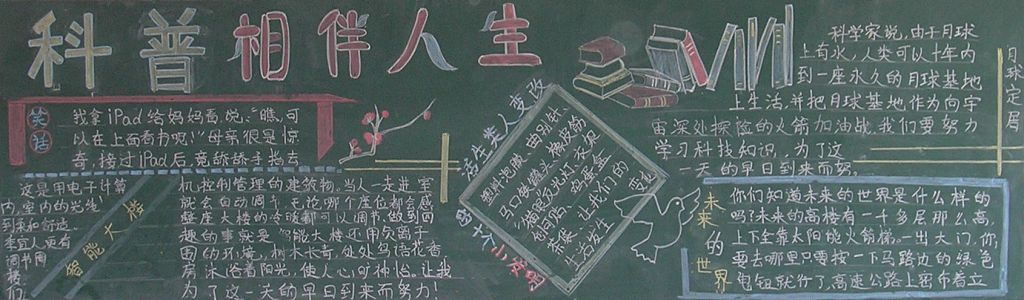 科普相伴人生
笑话
我拿iPad给妈妈看说,“瞧,可
以在上面看书呢!”母亲很是惊
奇,接过iPad后,竟舔舔手指去
智能大楼
这是用电子计算
机控制管理的建筑物,当人一走进室
内,室内的光线
就会自动调节,无论哪个座位都会感
到柔和舒适。
整座大楼的冷暖都可以调节,做到四
季宜人,更有
趣的事就是智能大楼还用欠离子
调节周
围的环境,树木长青,处处鸟语花香
楼们
房沐浴着阳光,使人心旷神怡。让我
为了这一天的早日到来而努力!
给人类生活变改
的十个小发明
塑料泡吸
马口铁罐头
橡皮筋
创可贴
茶袋
让我们的
生活发生
月球定居
科学家说,由于月球
上有水,人类可以十年内
到一座永久的月球基地
上生活,并把月球基地作为向宇
宙深处探险的火箭加油站,我们要努力
学习科技知识,为了这
一天的早日到来而努。
未来的世界
你们知道未来的世界是什么样的
吗?未来的高楼有一千多层那么高,
上下全靠太阳能火箭梯。一出大门,你
要去哪里只需按一下马路边的绿色
电钮就行了,高速公路上密布着立